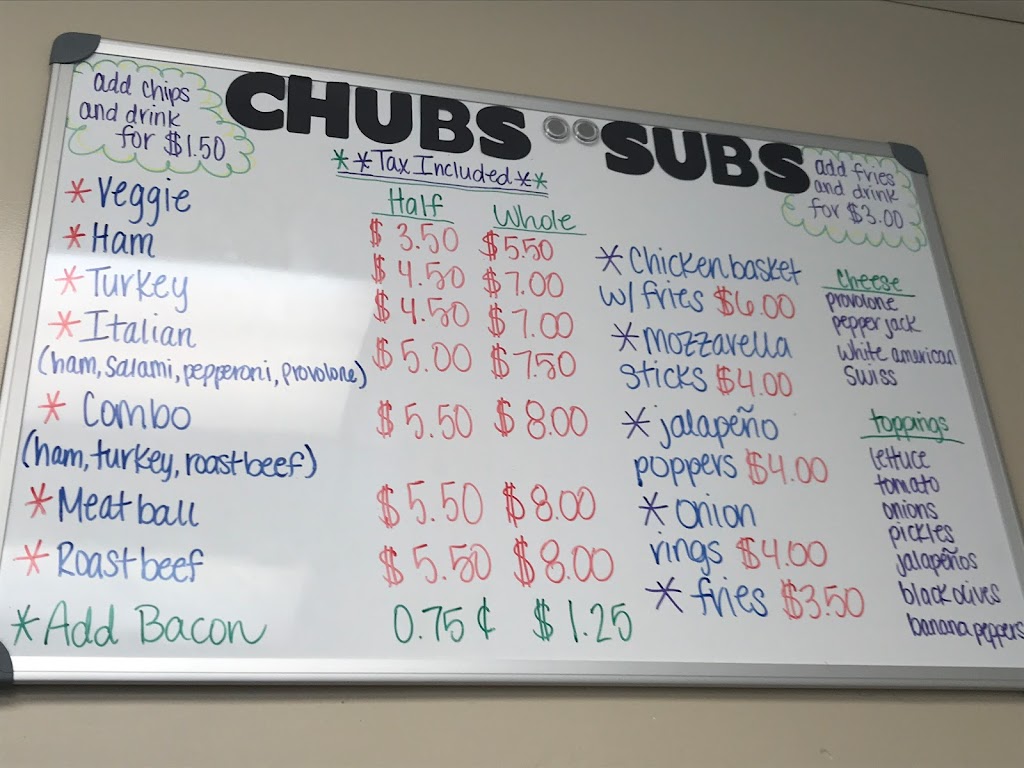 CHUBS SUBS
add chips
and drink
for $1.50
**Tax Included**
add fries
and drink
for $3.00
Half Whole
*Veggie $3.50 $5.50
*Ham $4.50 $7.00
*Turkey $4.50 $7.00
*Italian $5.00 $7.50
(ham, salami, pepperoni, provolone)
*Combo $5.50 $8.00
(ham, turkey, roastbeef)
*Meatball $5.50 $8.00
*Roastbeef $5.50 $8.00
*Add Bacon 0.75¢ $1.25
*Chicken basket
w/ fries $6.00
*Mozzarella
sticks $4.00
*jalapeño
poppers $4.00
*onion
rings $4.00
*fries $3.50
Cheese
provolone
pepper jack
white american
Swiss
toppings
lettuce
tomato
onions
pickles
jalapeños
black olives
banana peppers